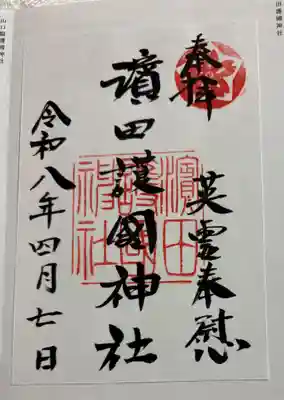 田護國神社
奉拝
英霊奉慰
濵田護國神社
濱田
護國
神社
令和八年四月七日